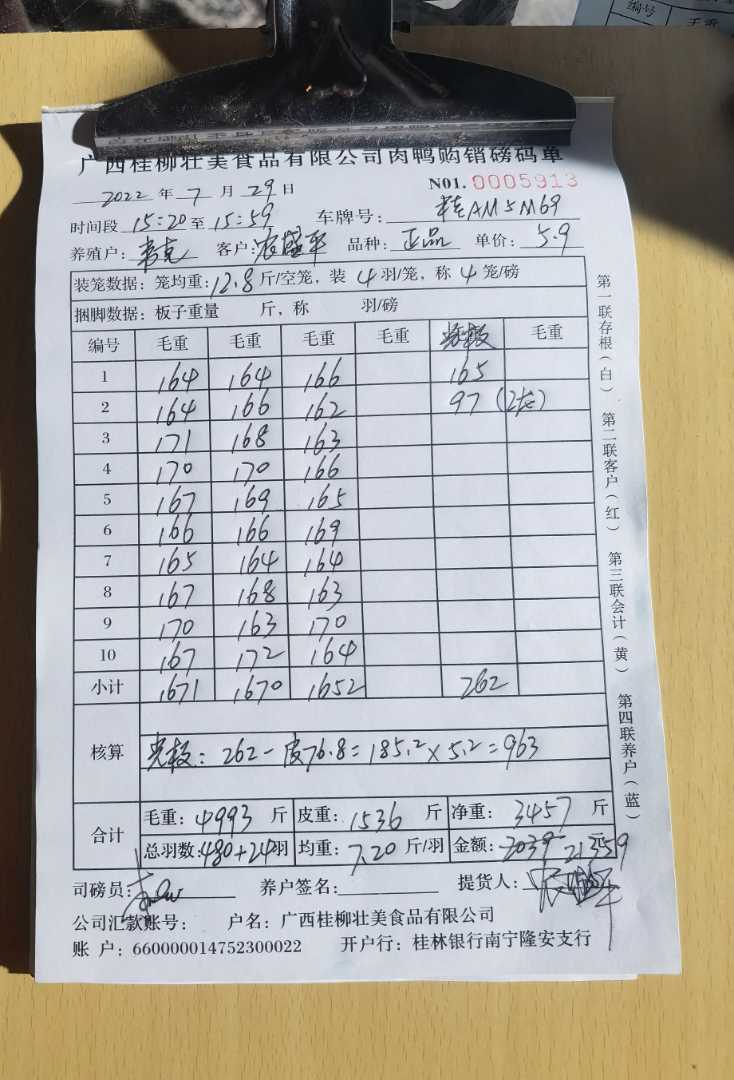 编号
毛重
广西桂柳壮美食品有限公司肉鸭购销磅码单
2022 年 7 月 29 日 N01. 0005913
时间段 15:20 至 15:59 车牌号: 桂AM5M69
养殖户: 客户: 农盛平 品种: 正品 单价: 5.9
装笼数据: 笼均重: 12.8 斤/空笼, 装 4 羽/笼, 称 4 笼/磅
捆脚数据: 板子重量 斤, 称 羽/磅
编号 毛重 毛重 毛重 毛重 毛重
1 164 164 166 165
2 164 166 162 97 (2笼)
3 171 168 163
4 170 170 166
5 167 169 165
6 166 166 169
7 165 164 164
8 167 168 163
9 170 163 170
10 167 172 164
小计 1671 1670 1652 262
核算 262-皮76.8=185.2×5.2=963
合计 毛重: 4993 斤 皮重: 1536 斤 净重: 3457 斤
总羽数: 480+24羽 均重: 7.20 斤/羽 金额: 21359
司磅员: 养户签名: 提货人:
公司汇款账号: 户名: 广西桂柳壮美食品有限公司
账 户: 660000014752300022 开户行: 桂林银行南宁隆安支行
第一联存根(白) 第二联客户(红) 第三联会计(黄) 第四联养户(蓝)